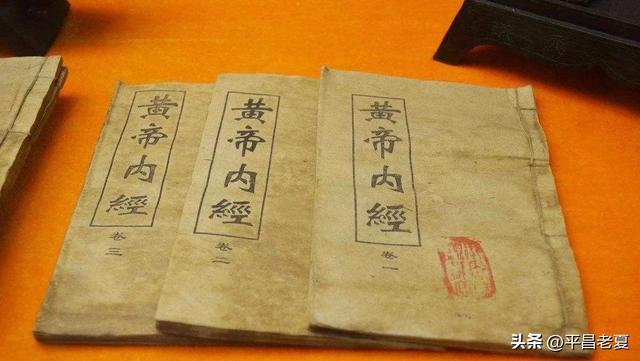 黄帝内經
卷一
黄帝内經
卷二
黄帝内經
卷三
头条 @平昌老夏